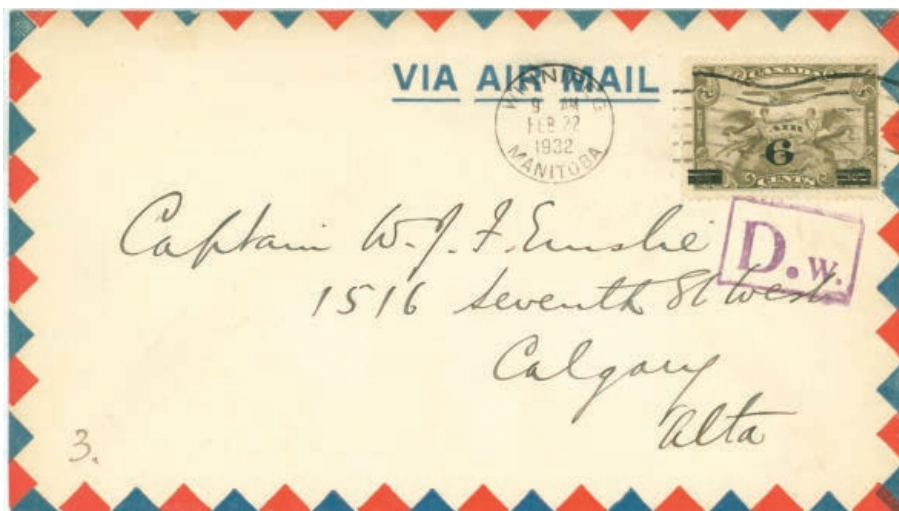 VIA AIR MAIL
WINNIPEG
9 AM
FEB 22
1932
MANITOBA
CANADA
AIR
6
CENTS
D.w.
Captain W. J. F. Emslie
1516 Seventh St West
Calgary
Alta
3.